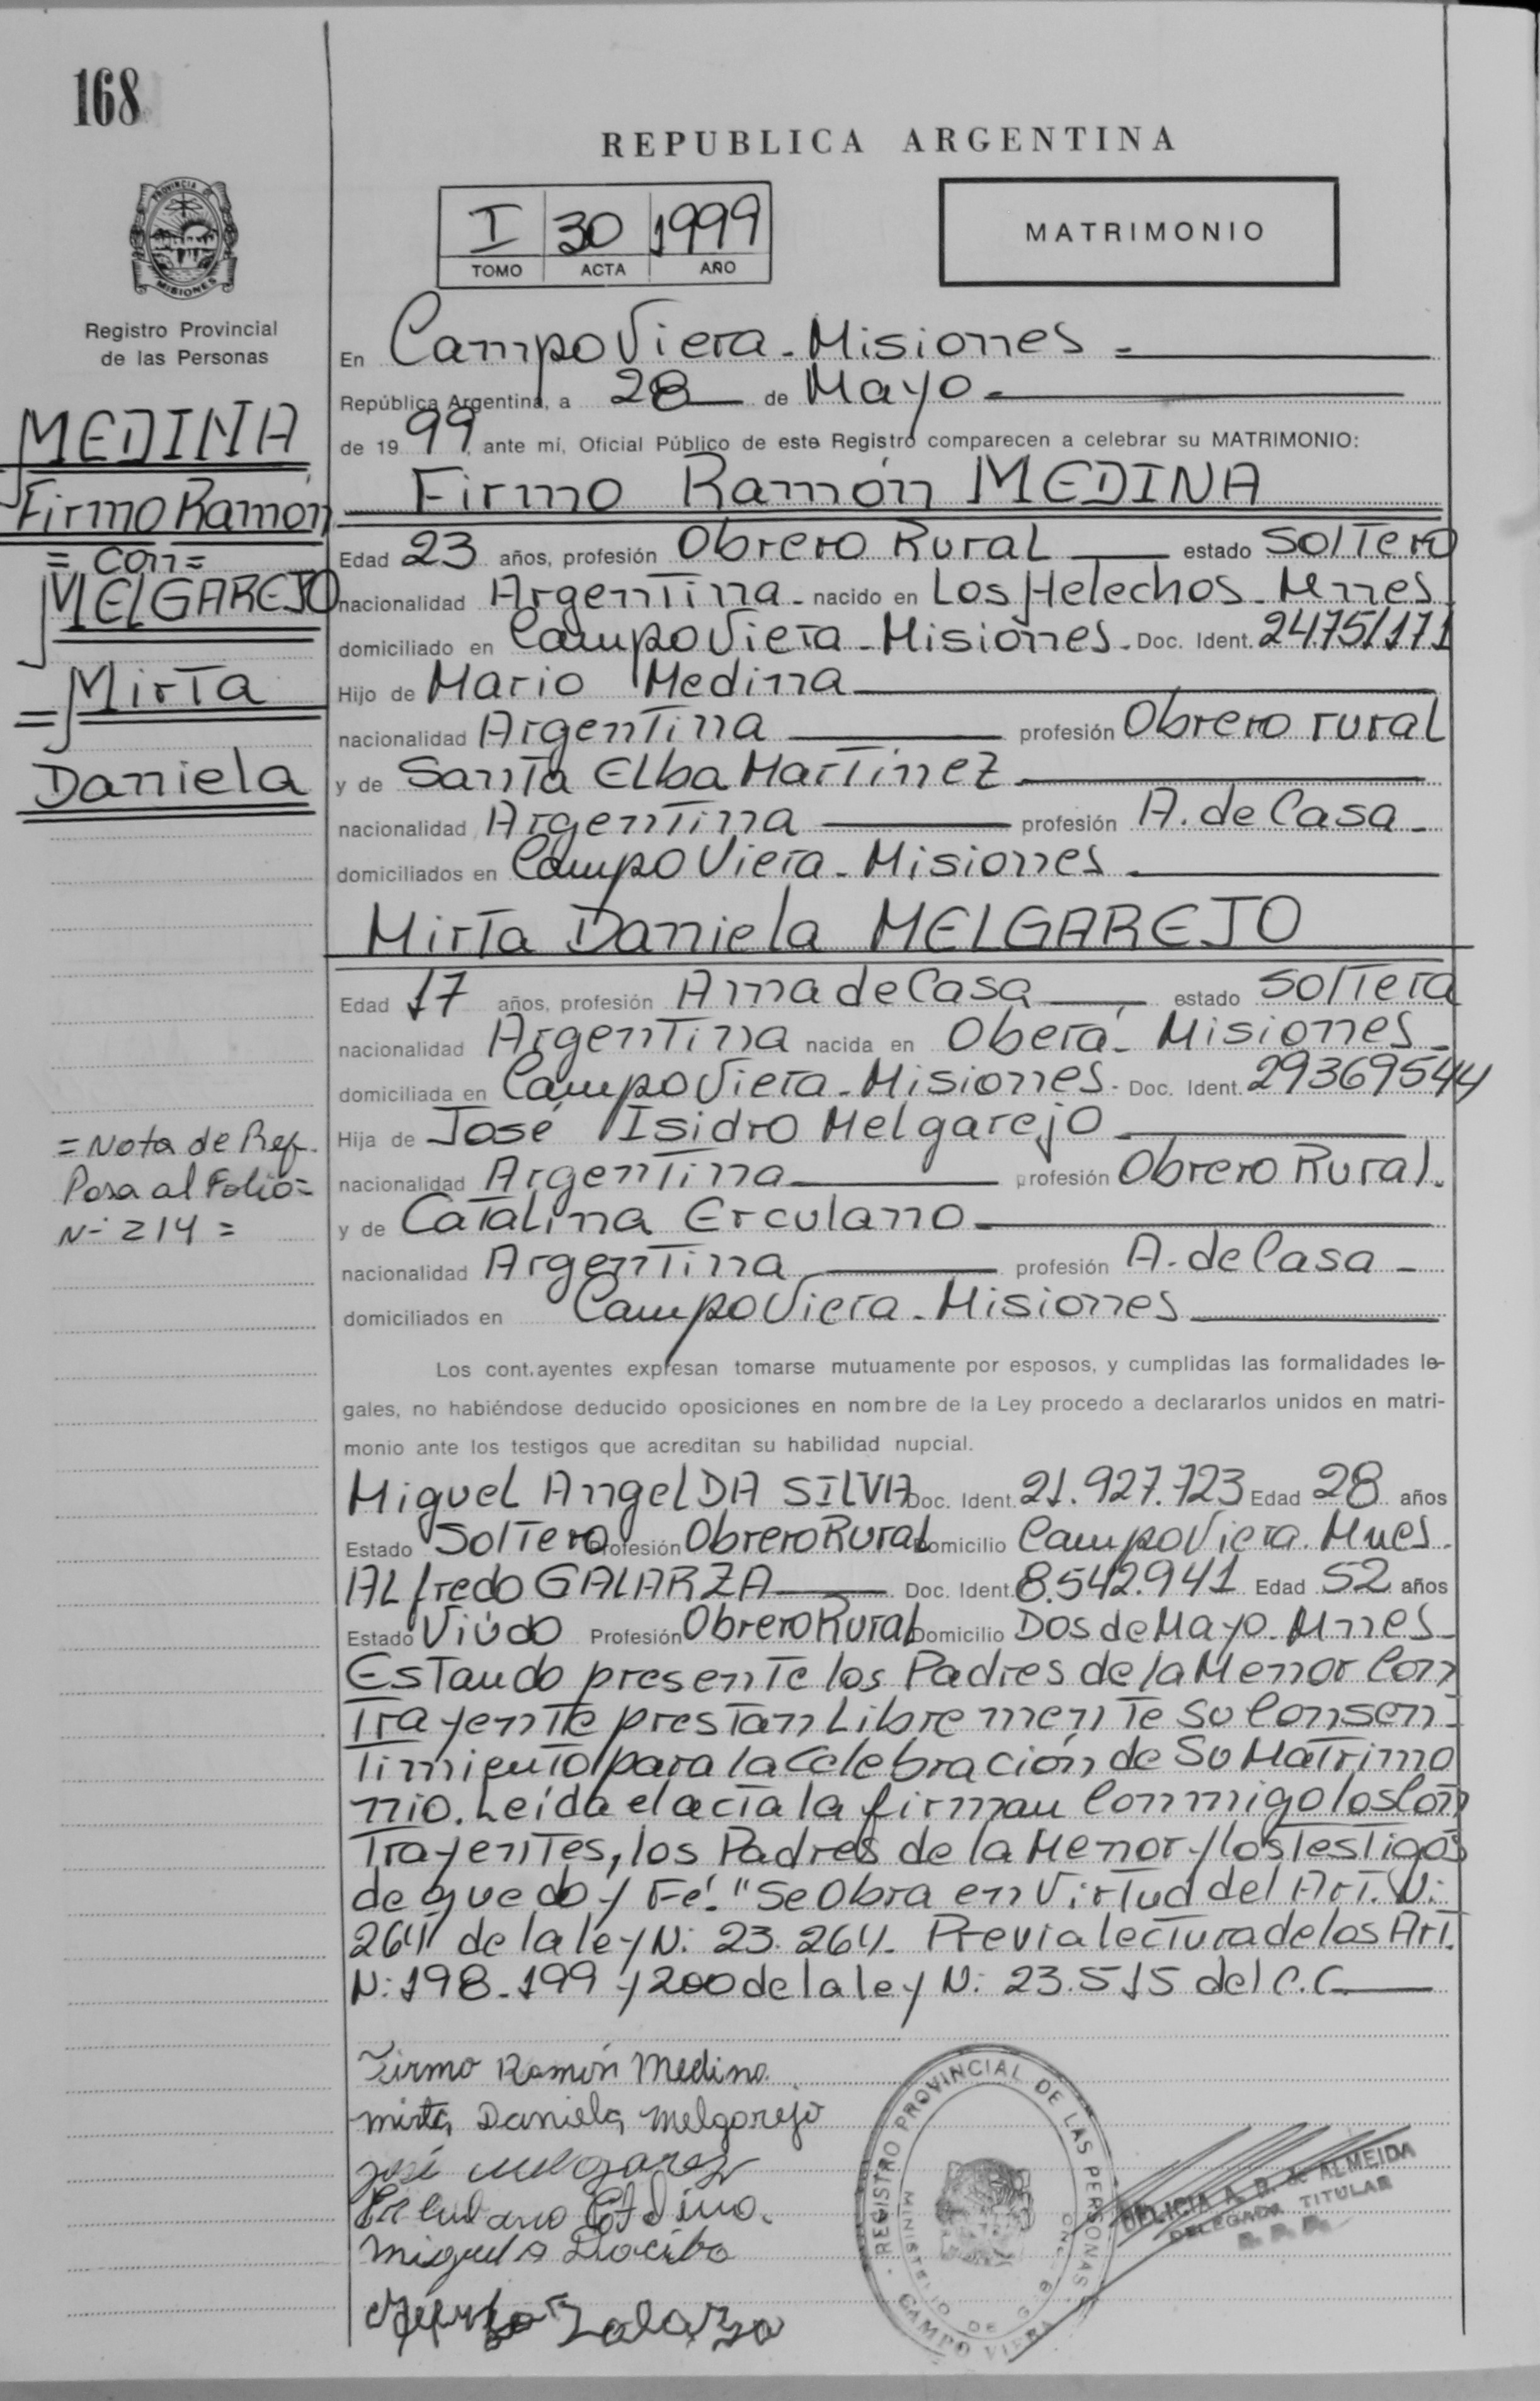 168
REPUBLICA ARGENTINA
I 30 1999
TOMO ACTA AÑO
MATRIMONIO
PROVINCIA DE
MISIONES
Registro Provincial
de las Personas
MEDINA
Firmo Ramón
= con =
MELGAREJO
= Mirta
Daniela
= Nota de Ref.
Pasa al Folio =
N- 214 =
En Campo Viera - Misiones -
República Argentina, a 28 de Mayo -
de 19 99, ante mí, Oficial Público de este Registro comparecen a celebrar su MATRIMONIO:
Firmo Ramón MEDINA
Edad 23 años, profesión Obrero Rural estado Soltero
nacionalidad Argentina - nacido en Los Helechos - Mnes -
domiciliado en Campo Viera - Misiones - Doc. Ident. 24.751.171
Hijo de Mario Medina
nacionalidad Argentina profesión Obrero rural
y de Santa Elba Martinez
nacionalidad Argentina profesión A. de Casa -
domiciliados en Campo Viera - Misiones -
Mirta Daniela MELGAREJO
Edad 17 años, profesión Ama de Casa estado Soltera
nacionalidad Argentina nacida en Oberá - Misiones -
domiciliada en Campo Viera - Misiones - Doc. Ident. 29369544
Hija de José Isidro Melgarejo
nacionalidad Argentina profesión Obrero Rural.
y de Catalina Erculano
nacionalidad Argentina profesión A. de Casa -
domiciliados en Campo Viera - Misiones
Los contrayentes expresan tomarse mutuamente por esposos, y cumplidas las formalidades le-
gales, no habiéndose deducido oposiciones en nombre de la Ley procedo a declararlos unidos en matri-
monio ante los testigos que acreditan su habilidad nupcial.
Miguel Angel DA SILVA Doc. Ident. 21.927.723 Edad 28 años
Estado Soltero Profesión Obrero Rural Domicilio Campo Viera. Mnes.
ALfredo GALARZA Doc. Ident. 8.542.941 Edad 52 años
Estado Viúdo Profesión Obrero Rural Domicilio Dos de Mayo - Mnes -
Estando presente los Padres de la Menor Con
Trayente prestan Libremente su Consen-
timiento para la Celebración de Su Matrimo
nio. Leída el acta la firman Conmigo los Con
Trayentes, los Padres de la Menor y los testigos
de que doy Fé. "Se Obra en Virtud del Art. N:
264" de la ley N: 23.264. Previa lectura de los Art.
N: 198-199 y 200 de la ley N: 23.515 del C.C.
Firmo Ramón Medina
mirta Daniela Melgarejo
José
Miguel A
REGISTRO PROVINCIAL DE LAS PERSONAS
MINISTERIO DE G
CAMPO VIERA
DELICIA A. B. de ALMEIDA
DELEGADA TITULAR